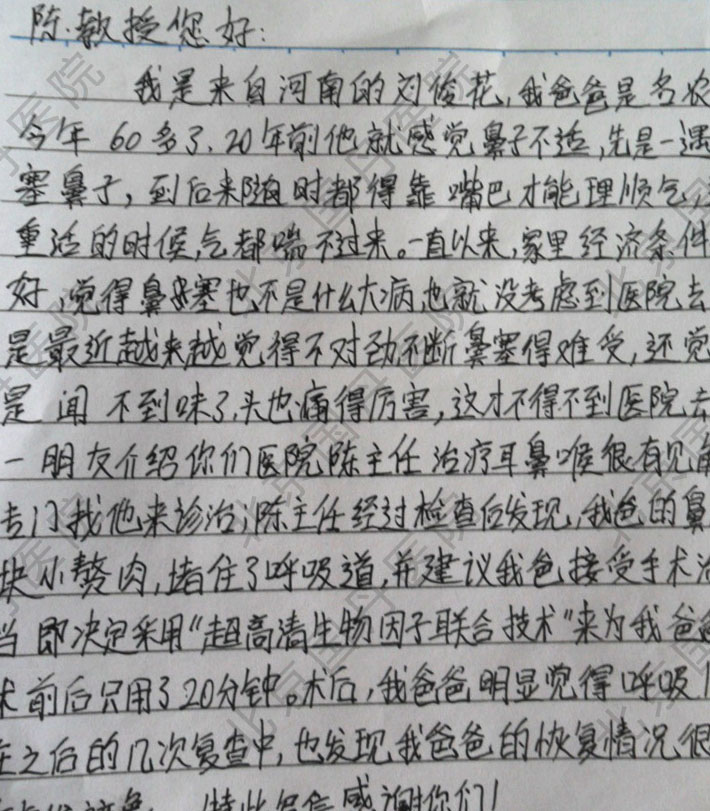 陈教授您好:
我是来自河南的刘俊花,我爸爸是名农
今年60多了,20年前他就感觉鼻子不适,先是一遇
塞鼻子,到后来随时都得靠嘴巴才能理顺气,
重活的时候,气都喘不过来。一直以来,家里经济条件
好,觉得鼻塞也不是什么大病,也就没考虑到医院去
是最近越来越觉得不对劲,不断鼻塞得难受,还觉
是闻不到味了,头也痛得厉害,这才不得不到医院去
一朋友介绍你们医院陈主任治疗耳鼻喉很有见解
专门找他来诊治;陈主任经过检查后发现,我爸的鼻
块小赘肉,堵住了呼吸道,并建议我爸接受手术治
当即决定采用“超高清生物因子联合技术”来为我爸爸
术前后只用了20分钟。术后,我爸爸明显觉得呼吸
在之后的几次复查中,也发现我爸爸的恢复情况很
特此写信感谢你们!
北京国丹医院